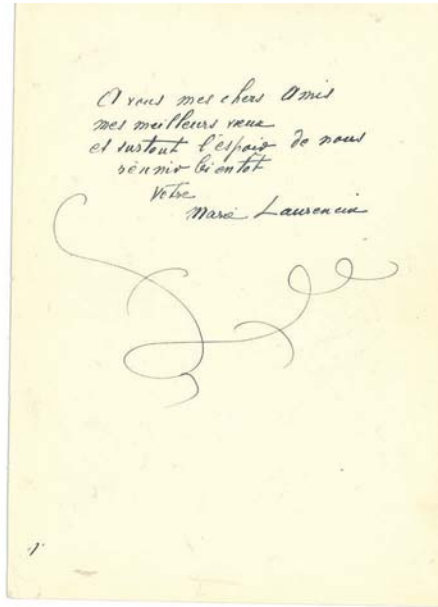 A vous mes chers Amis
mes meilleurs vœux
et surtout l'espoir de nous
réunir bientot
Votre
Marie Laurencin